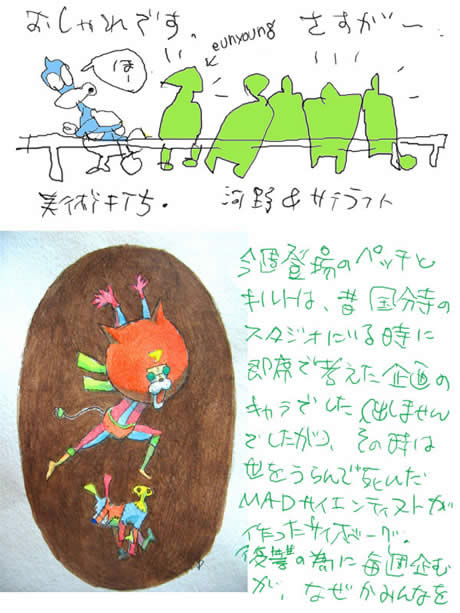 おしゃれです。 さすがー。
eunyoung
ほー
美術打ち。 河野&サテライト
今週登場のペッチと
キルトは、昔国分寺の
スタジオにいる時に
即席で考えた企画の
キャラでした(出しません
でしたが)、その時は
世をうらんで死んだ
MADサイエンティストが
作ったサイボーグ。
復讐の為に毎週企む
が、なぜかみんなを